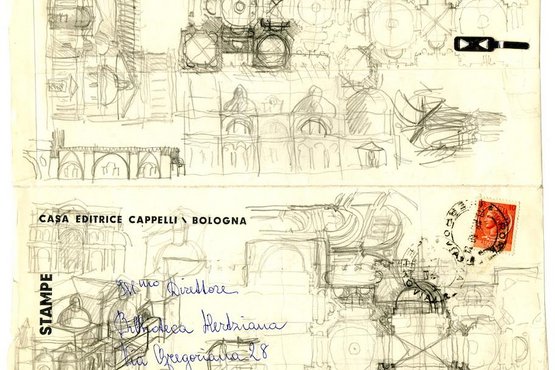 CASA EDITRICE CAPPELLI \ BOLOGNA
STAMPE
Ill.mo Direttore
Biblioteca Hertziana
Via Gregoriana 28